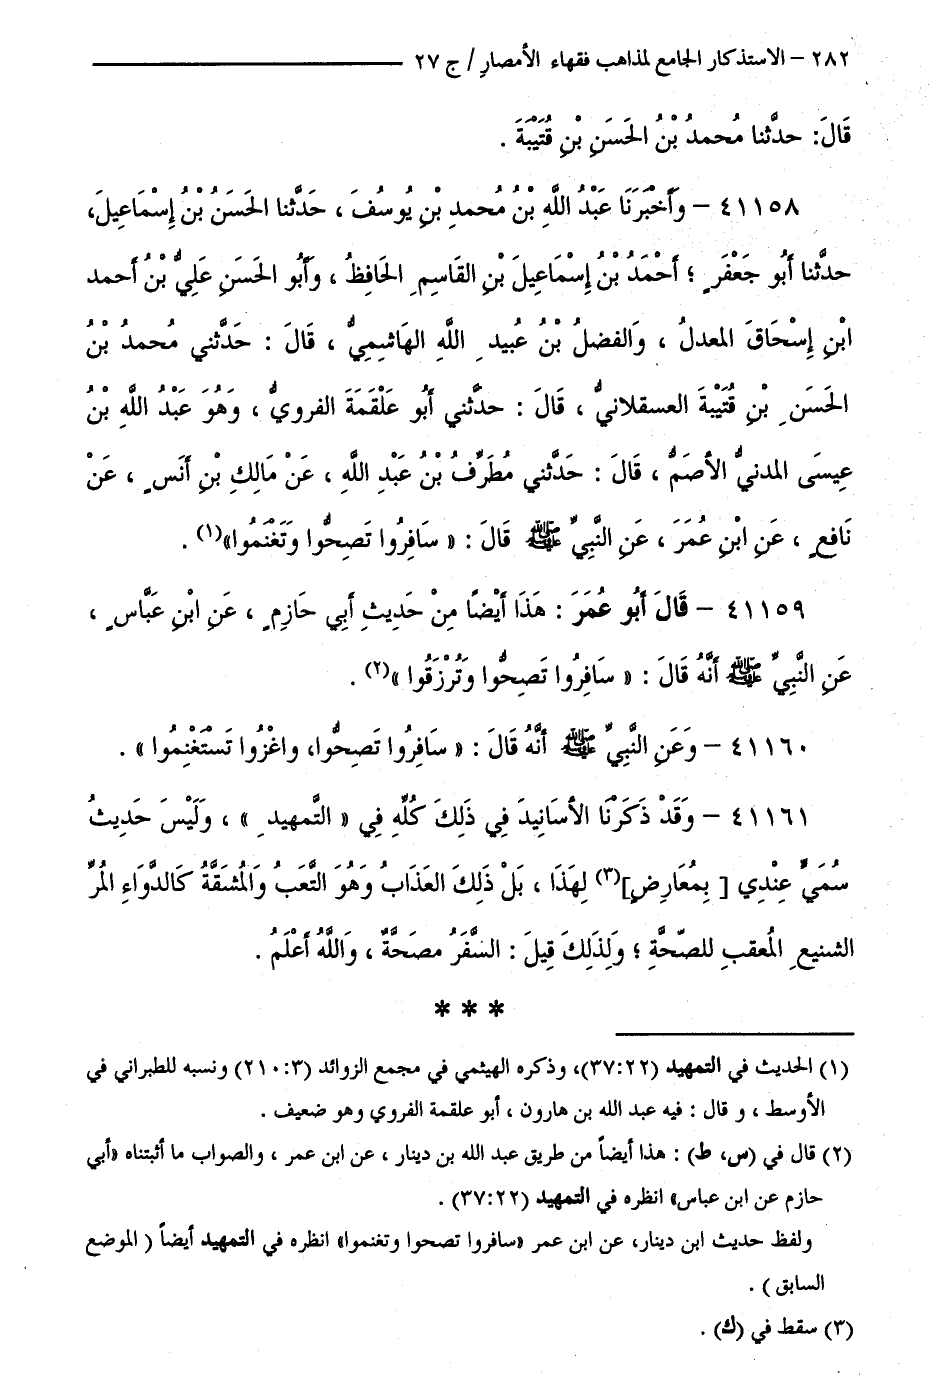 ٢٨٢ – الاستذكار الجامع لمذاهب فقهاء الأمصار / ج ٢٧
قَالَ: حدَّثنا مُحمدُ بْنُ الحَسَنِ بْنِ قُتَيْبَةَ .
٤١١٥٨ – وَأَخْبَرَنَا عَبْدُ اللَّهِ بْنُ مُحمدِ بْنِ يُوسُفَ ، حَدَّثنا الحَسَنُ بْنُ إِسْمَاعِيلَ،
حدَّثنا أَبُو جَعْفَرٍ ؛ أَحْمَدُ بْنُ إِسْمَاعِيلَ بْنِ القَاسِمِ الحَافِظُ ، وَأَبُو الحَسَنِ عَلِيُّ بْنُ أَحمد
ابْنِ إِسْحَاقَ المعدلُ ، وَالفضلُ بْنُ عُبيدِ اللَّهِ الهَاشِمِيُّ ، قَالَ : حَدَّثني مُحمدُ بْنُ
الحَسَنِ بْنِ قُتَيْبَةَ العسقلانيُّ ، قَالَ : حدَّثني أَبُو عَلْقَمَةَ الفرويُّ ، وَهُوَ عَبْدُ اللَّهِ بْنُ
عِيسَى المدنيُّ الأَصَمُّ ، قَالَ : حَدَّثني مُطَرِّفُ بْنُ عَبْدِ اللَّهِ ، عَنْ مَالِكِ بْنِ أَنَسٍ ، عَنْ
نَافِعٍ ، عَنِ ابْنِ عُمَرَ ، عَنِ النَّبِيِّ ﷺ قَالَ : « سَافِرُوا تَصِحُّوا وَتَغْنَمُوا»(١) .
٤١١٥٩ – قَالَ أَبُو عُمَرَ : هَذَا أَيْضًا مِنْ حَدِيثِ أَبِي حَازِمٍ ، عَنِ ابْنِ عَبَّاسٍ ،
عَنِ النَّبِيِّ ﷺ أَنَّهُ قَالَ : « سَافِرُوا تَصِحُّوا وَتُرْزَقُوا »(٢) .
٤١١٦٠ – وَعَنِ النَّبِيِّ ﷺ أَنَّهُ قَالَ : « سَافِرُوا تَصِحُّوا، واغْزُوا تَسْتَغْنِمُوا » .
٤١١٦١ – وَقَدْ ذَكَرْنَا الأَسَانِيدَ فِي ذَلِكَ كُلِّهِ فِي « التَّمهيدِ » ، وَلَيْسَ حَدِيثُ
سُمَيٍّ عِنْدِي [ بِمُعَارِضٍ](٣) لِهَذَا ، بَلْ ذَلِكَ العَذَابُ وَهُوَ التَّعَبُ وَالمُشَقَّةُ كَالدَّوَاءِ المُرِّ
الشنيعِ المُعقبِ للصِّحَّةِ ؛ وَلِذَلِكَ قِيلَ : السَّفَرُ مصَحَّةٌ ، وَاللَّهُ أَعْلَمُ .
* * *
(١) الحديث في التمهيد (٣٧:٢٢)، وذكره الهيثمي في مجمع الزوائد (٢١٠:٣) ونسبه للطبراني في
الأوسط ، و قال : فيه عبد الله بن هارون ، أبو علقمة الفروي وهو ضعيف .
(٢) قال في (س، ط) : هذا أيضاً من طريق عبد الله بن دينار ، عن ابن عمر ، والصواب ما أثبتناه «أبي
حازم عن ابن عباس» انظره في التمهيد (٣٧:٢٢) .
ولفظ حديث ابن دينار، عن ابن عمر «سافروا تصحوا وتغنموا» انظره في التمهيد أيضاً ( الموضع
السابق ) .
(٣) سقط في (ك) .